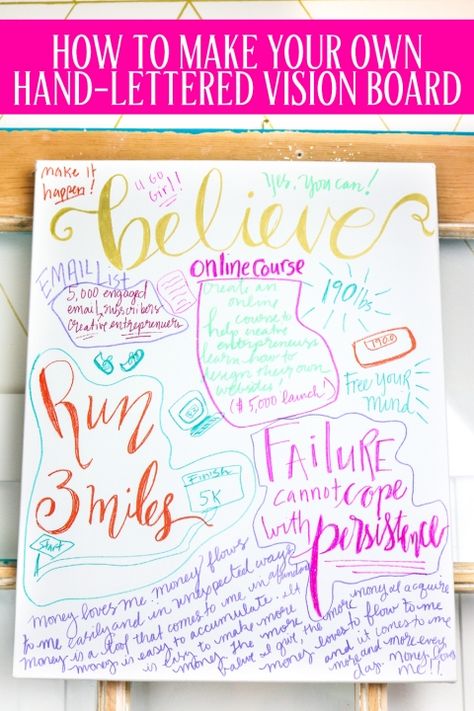 HOW TO MAKE YOUR OWN
HAND-LETTERED VISION BOARD
make it
happen!
u go
Girl!!
Yes, You can!
believe
EMAIL List
5,000 engaged
email subscribers
creative entrepreneuers
online course
Create an
online
course to
help creative
entrepreneurs
learn how to
design their own
websites!
($5,000 launch)
190lbs
190.0
Free Your
Mind
Run
3 miles
Start
Finish
5K
FAILURE
cannot cope
with persistence
Money loves me. Money flows
to me easily and in unexpected ways
money is a tool that comes to me in
money is easy to accumulate. It
is easy to make more
money. The more
value I give, the more money I acquire
money loves to flow to me
and it comes to me
more and more every
day. Money flows
me!!!